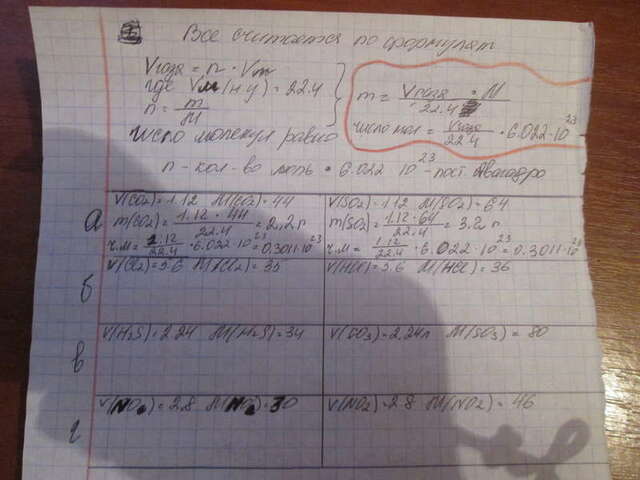 Все считается по формулам
Vгаза = n · Vm
где Vm (н у) = 22.4
n = m/M
число молекул равно
m = Vгаза · M / 22.4
число мол = Vгаза / 22.4 · 6.022·10^23
n - кол-во моль · 6.022 10^23 - пост. Авагадро
а
V(CO2) = 1.12 M(CO2) = 44
m(CO2) = 1.12 · 44 / 22.4 = 2,2 г
ч.м = 1.12 / 22.4 · 6.022 10^23 = 0,3011·10^23
V(SO2) = 1.12 M(SO2) = 64
m(SO2) = 1.12 · 64 / 22.4 = 3.2 г
ч.м = 1.12 / 22.4 · 6.022 · 10^23 = 0.3011·10^23
б
V(Cl2) = 5.6 M(Cl2) = 35
V(HCl) = 5.6 M(HCl) = 36
в
V(H2S) = 2.24 M(H2S) = 34
V(SO3) = 2.24л M(SO3) = 80
г
V(NO) = 2.8 M(NO) = 30
V(NO2) = 2.8 M(NO2) = 46